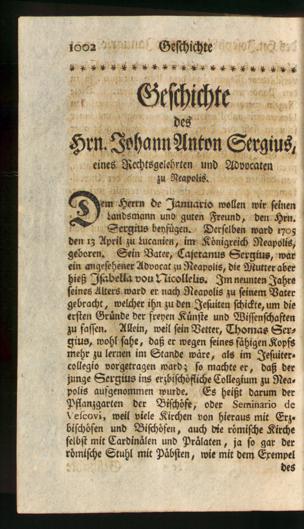 1002 Geschichte
Geschichte
des
Hrn. Johann Anton Sergius,
eines Rechtsgelehrten und Advocaten
zu Neapolis.
Dem Herrn de Januario wollen wir seinen
Landsmann und guten Freund, den Hrn.
Sergius beyfügen. Derselben ward 1705
den 13 April zu Lucanien, im Königreich Neapolis,
geboren. Sein Vater, Cajetanus Sergius, war
ein angesehener Advocat zu Neapolis, die Mutter aber
hieß Isabella von Nicollelis. Im neunten Jahre
seines Alters ward er nach Neapolis zu seinem Vater
gebracht, welcher ihn zu den Jesuiten schickte, um die
ersten Gründe der freyen Künste und Wissenschaften
zu fassen. Allein, weil sein Vetter, Thomas Ser-
gius, wohl sahe, daß er wegen seines fähigen Kopfs
mehr zu lernen im Stande wäre, als im Jesuiter-
collegio vorgetragen ward; so machte er, daß der
junge Sergius ins erzbischöfliche Collegium zu Nea-
polis aufgenommen wurde. Es heißt darum der
Pflanzgarten der Bischöfe, oder Seminario de
Vescovi, weil viele Kirchen von hieraus mit Erz-
bischöfen und Bischöfen, auch die römische Kirche
selbst mit Cardinälen und Prälaten, ja so gar der
römische Stuhl mit Päbsten, wie mit dem Exempel
des